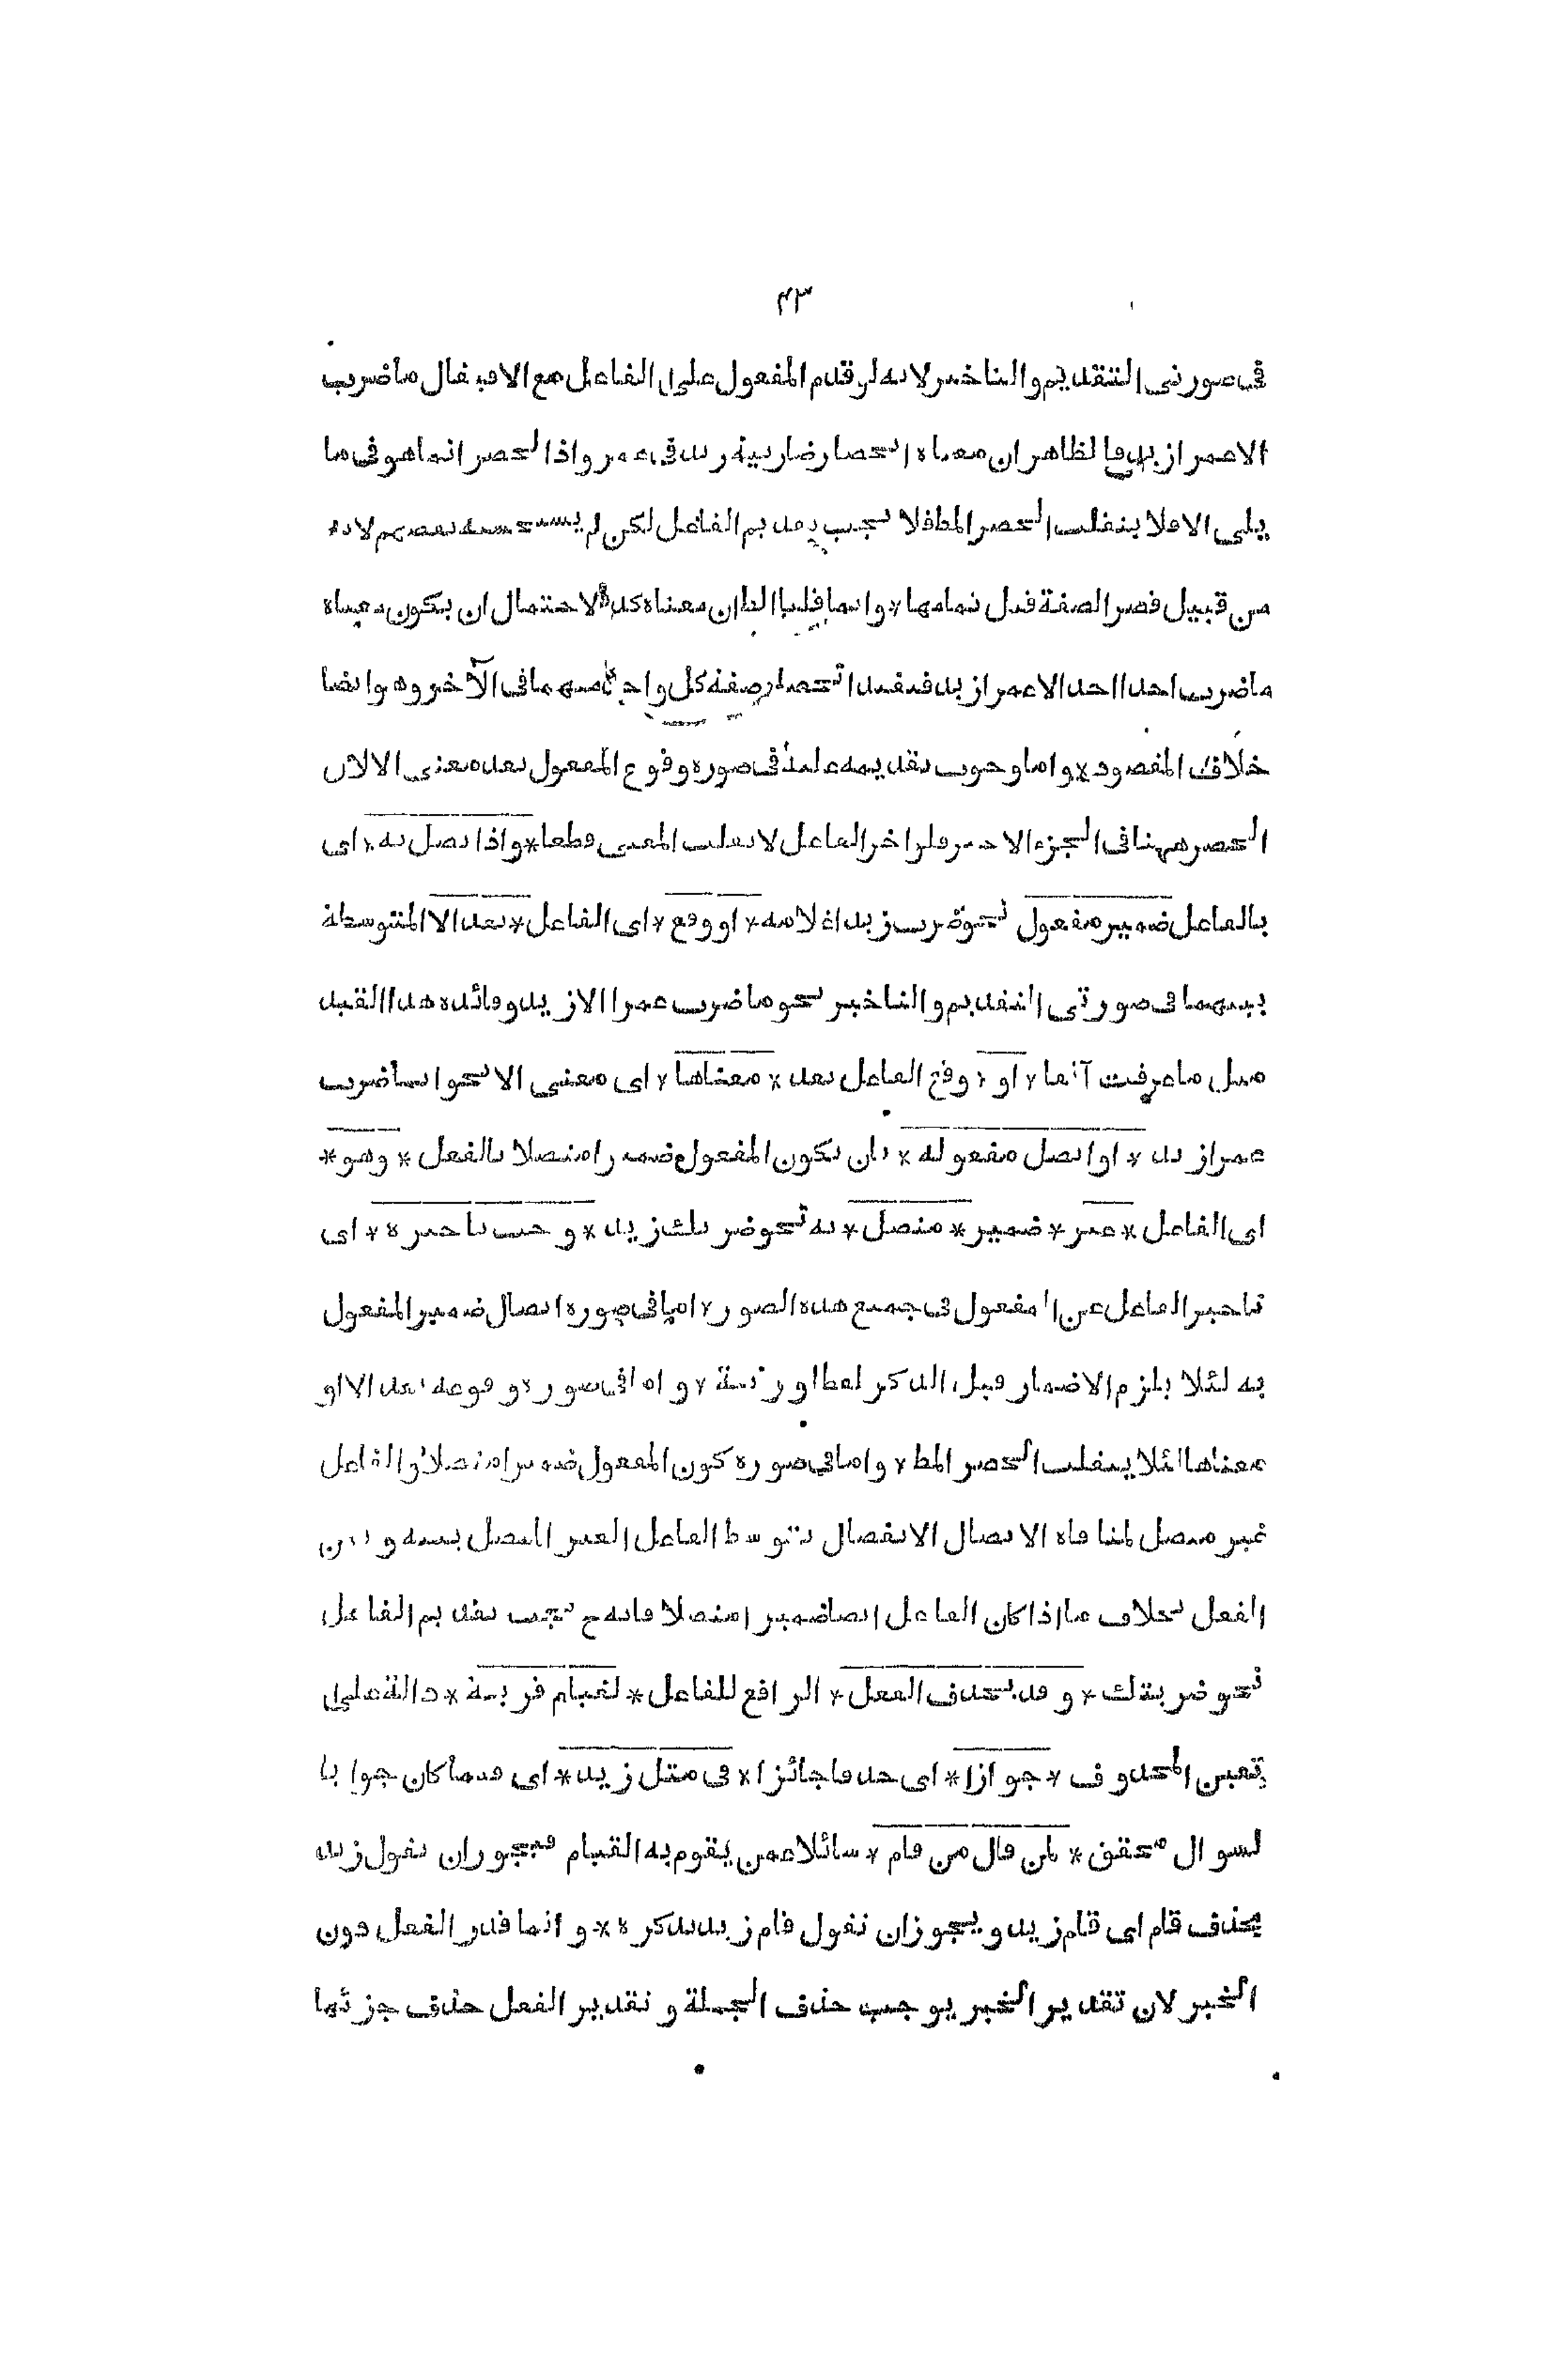 ٤٣
فى صورتى التقديم والتاخير لانه لو قدم المفعول على الفاعل مع الا فيقال ما ضرب
الا عمرا زيد فالظاهر ان معناه انحصار ضاربية زيد فى عمرو اذ الحصر انما هو فى ما
يلى الا فلا ينقلب الحصر المط فلا يجب تقديم الفاعل لكن لم يستحسنه بعضهم لانه
من قبيل قصر الصفة قبل تمامها * وانما قلنا الظ ان معناه كذا لاحتمال ان يكون معناه
ما ضرب احدا احد الا عمرا زيد فيفيد انحصار صفة كل واحد منهما فى الآخر وهو ايضا
خلاف المقصود * واما وجوب تقديمه عليه فى صورة وقوع المفعول بعد معنى الا لان
الحصر ههنا فى الجزء الاخير فلو اخر الفاعل لانقلب المعنى قطعا * واذا اتصل به * اى
بالفاعل ضمير مفعول نحو ضرب زيدا غلامه * او وقع * اى الفاعل * بعد الا المتوسطة
بينهما فى صورتى التقديم والتاخير نحو ما ضرب عمرا الا زيد وفائدة هذا القيد
مثل ما عرفت آنفا * او * وقع الفاعل بعد * معناها * اى معنى الا نحو انما ضرب
عمرا زيد * او اتصل مفعوله * بان يكون المفعول ضميرا متصلا بالفعل * وهو *
اى الفاعل * غير * ضمير * متصل * به نحو ضربك زيد * وجب تاخيره * اى
تاخير الفاعل عن المفعول فى جميع هذه الصور * اما فى صورة اتصال ضمير المفعول
به لئلا يلزم الاضمار قبل الذكر لفظا ورتبة * واما فى صورة وقوعه بعد الا او
معناها لئلا ينقلب الحصر المط * واما فى صورة كون المفعول ضميرا متصلا والفاعل
غير متصل لمنافاة الاتصال الانفصال بتوسط الفاعل الغير المتصل بينه وبين
الفعل بخلاف ما اذا كان الفاعل ايضا ضميرا متصلا فانه ح يجب تقديم الفاعل
نحو ضربتك * وقد يحذف الفعل * الرافع للفاعل * لقيام قرينة * دالة على
تعيين المحذوف * جوازا * اى حذفا جائزا * فى مثل زيد * اى فيما كان جوابا
لسوال محقق * لمن قال من قام * سائلا عمن يقوم به القيام فيجوز ان تقول زيد
بحذف قام اى قام زيد ويجوز ان تقول قام زيد بذكره * وانما قدر الفعل دون
الخبر لان تقدير الخبر يوجب حذف الجملة وتقدير الفعل حذف جزئها